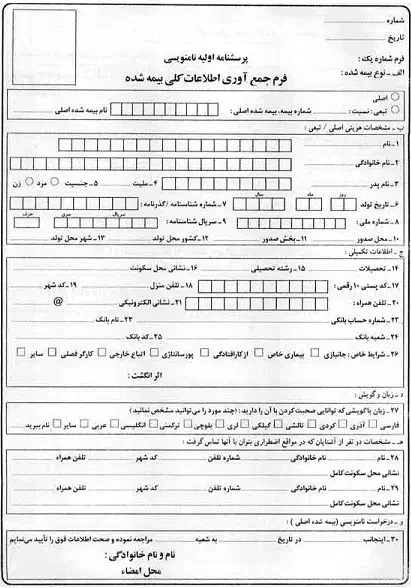 شماره :
تاریخ
پرسشنامه اولیه نامنویسی
فرم شماره یک :
فرم جمع آوری اطلاعات کلی بیمه شده
الف - نوع بیمه شده :
اصلی
تبعی : نسبت : شماره بیمه، بیمه شده اصلی : نام بیمه شده اصلی
ب - مشخصات هویتی اصلی / تبعی :
۱ - نام
۲ - نام خانوادگی
۳ - نام پدر ۴ - ملیت ۵ - جنسیت مرد زن
روز ماه سال
۶ - تاریخ تولد ۷ - شماره شناسنامه / گذرنامه :
سریال سری حرف
۸ - شماره ملی : ۹ - سریال شناسنامه :
۱۰ - محل صدور ۱۱ - بخش صدور ۱۲ - کشور محل تولد ۱۳ - شهر محل تولد
ج - اطلاعات تکمیلی :
۱۴ - تحصیلات ۱۵ - رشته تحصیلی ۱۶ - نشانی محل سکونت
۱۷ - کد پستی ۱۰ رقمی : ۱۸ - تلفن منزل ۱۹ - کد شهر
۲۰ - تلفن همراه : ۲۱ - نشانی الکترونیکی @
۲۲ - شماره حساب بانکی ۲۳ - نام بانک
۲۴ - شعبه بانک ۲۵ - کد بانک
۲۶ - شرایط خاص : جانبازی بیماری خاص از کارافتادگی پورسانتاژی اتباع خارجی کارگر فصلی سایر
اثر انگشت :
د - زبان و گویش :
۲۷ - زبان یا گویشی که توانایی صحبت کردن با آن را دارید : (چند مورد را می توانید مشخص نمائید)
فارسی آذری کردی تالشی گیلکی لری بلوچی ترکمنی انگلیسی عربی سایر نام ببرید
هـ - مشخصات دو نفر از آشنایان که در مواقع اضطراری بتوان با آنها تماس گرفت :
۲۸ - نام نام خانوادگی شماره تلفن کد شهر تلفن همراه
نشانی محل سکونت کامل
۲۹ - نام نام خانوادگی شماره تلفن کد شهر تلفن همراه
نشانی محل سکونت کامل
و - درخواست نامنویسی (بیمه شده اصلی) :
۳۰ - اینجانب در تاریخ به شعبه مراجعه نموده و صحت اطلاعات فوق را تأیید می نمایم
نام و نام خانوادگی :
محل امضاء